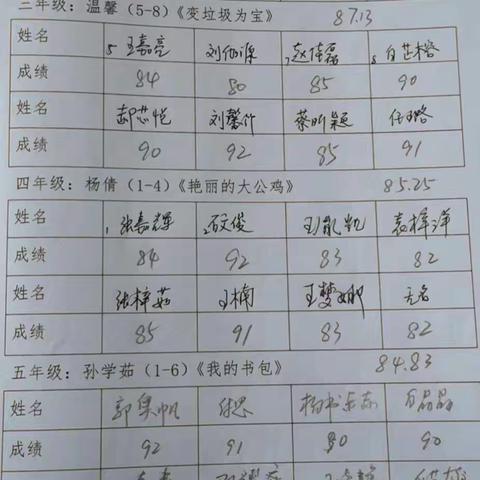 三年级：温馨（5-8）《变垃圾为宝》 87.13
姓名 5 王嘉亮 刘伯源 赵倩磊 8 白芷榕
成绩 84 80 85 90
姓名 郝芯恺 刘馨竹 蔡昕颖 任璐
成绩 90 92 85 91
四年级：杨倩（1-4）《艳丽的大公鸡》 85.25
姓名 1 张嘉辉 文俊 王凯凯 袁梓洋
成绩 84 92 83 82
姓名 张梓茹 王楠 王梦 无名
成绩 85 91 83 82
五年级：孙学茹（1-6）《我的书包》 84.83
姓名 郭奥帆 白晶晶
成绩 92 91 80 90